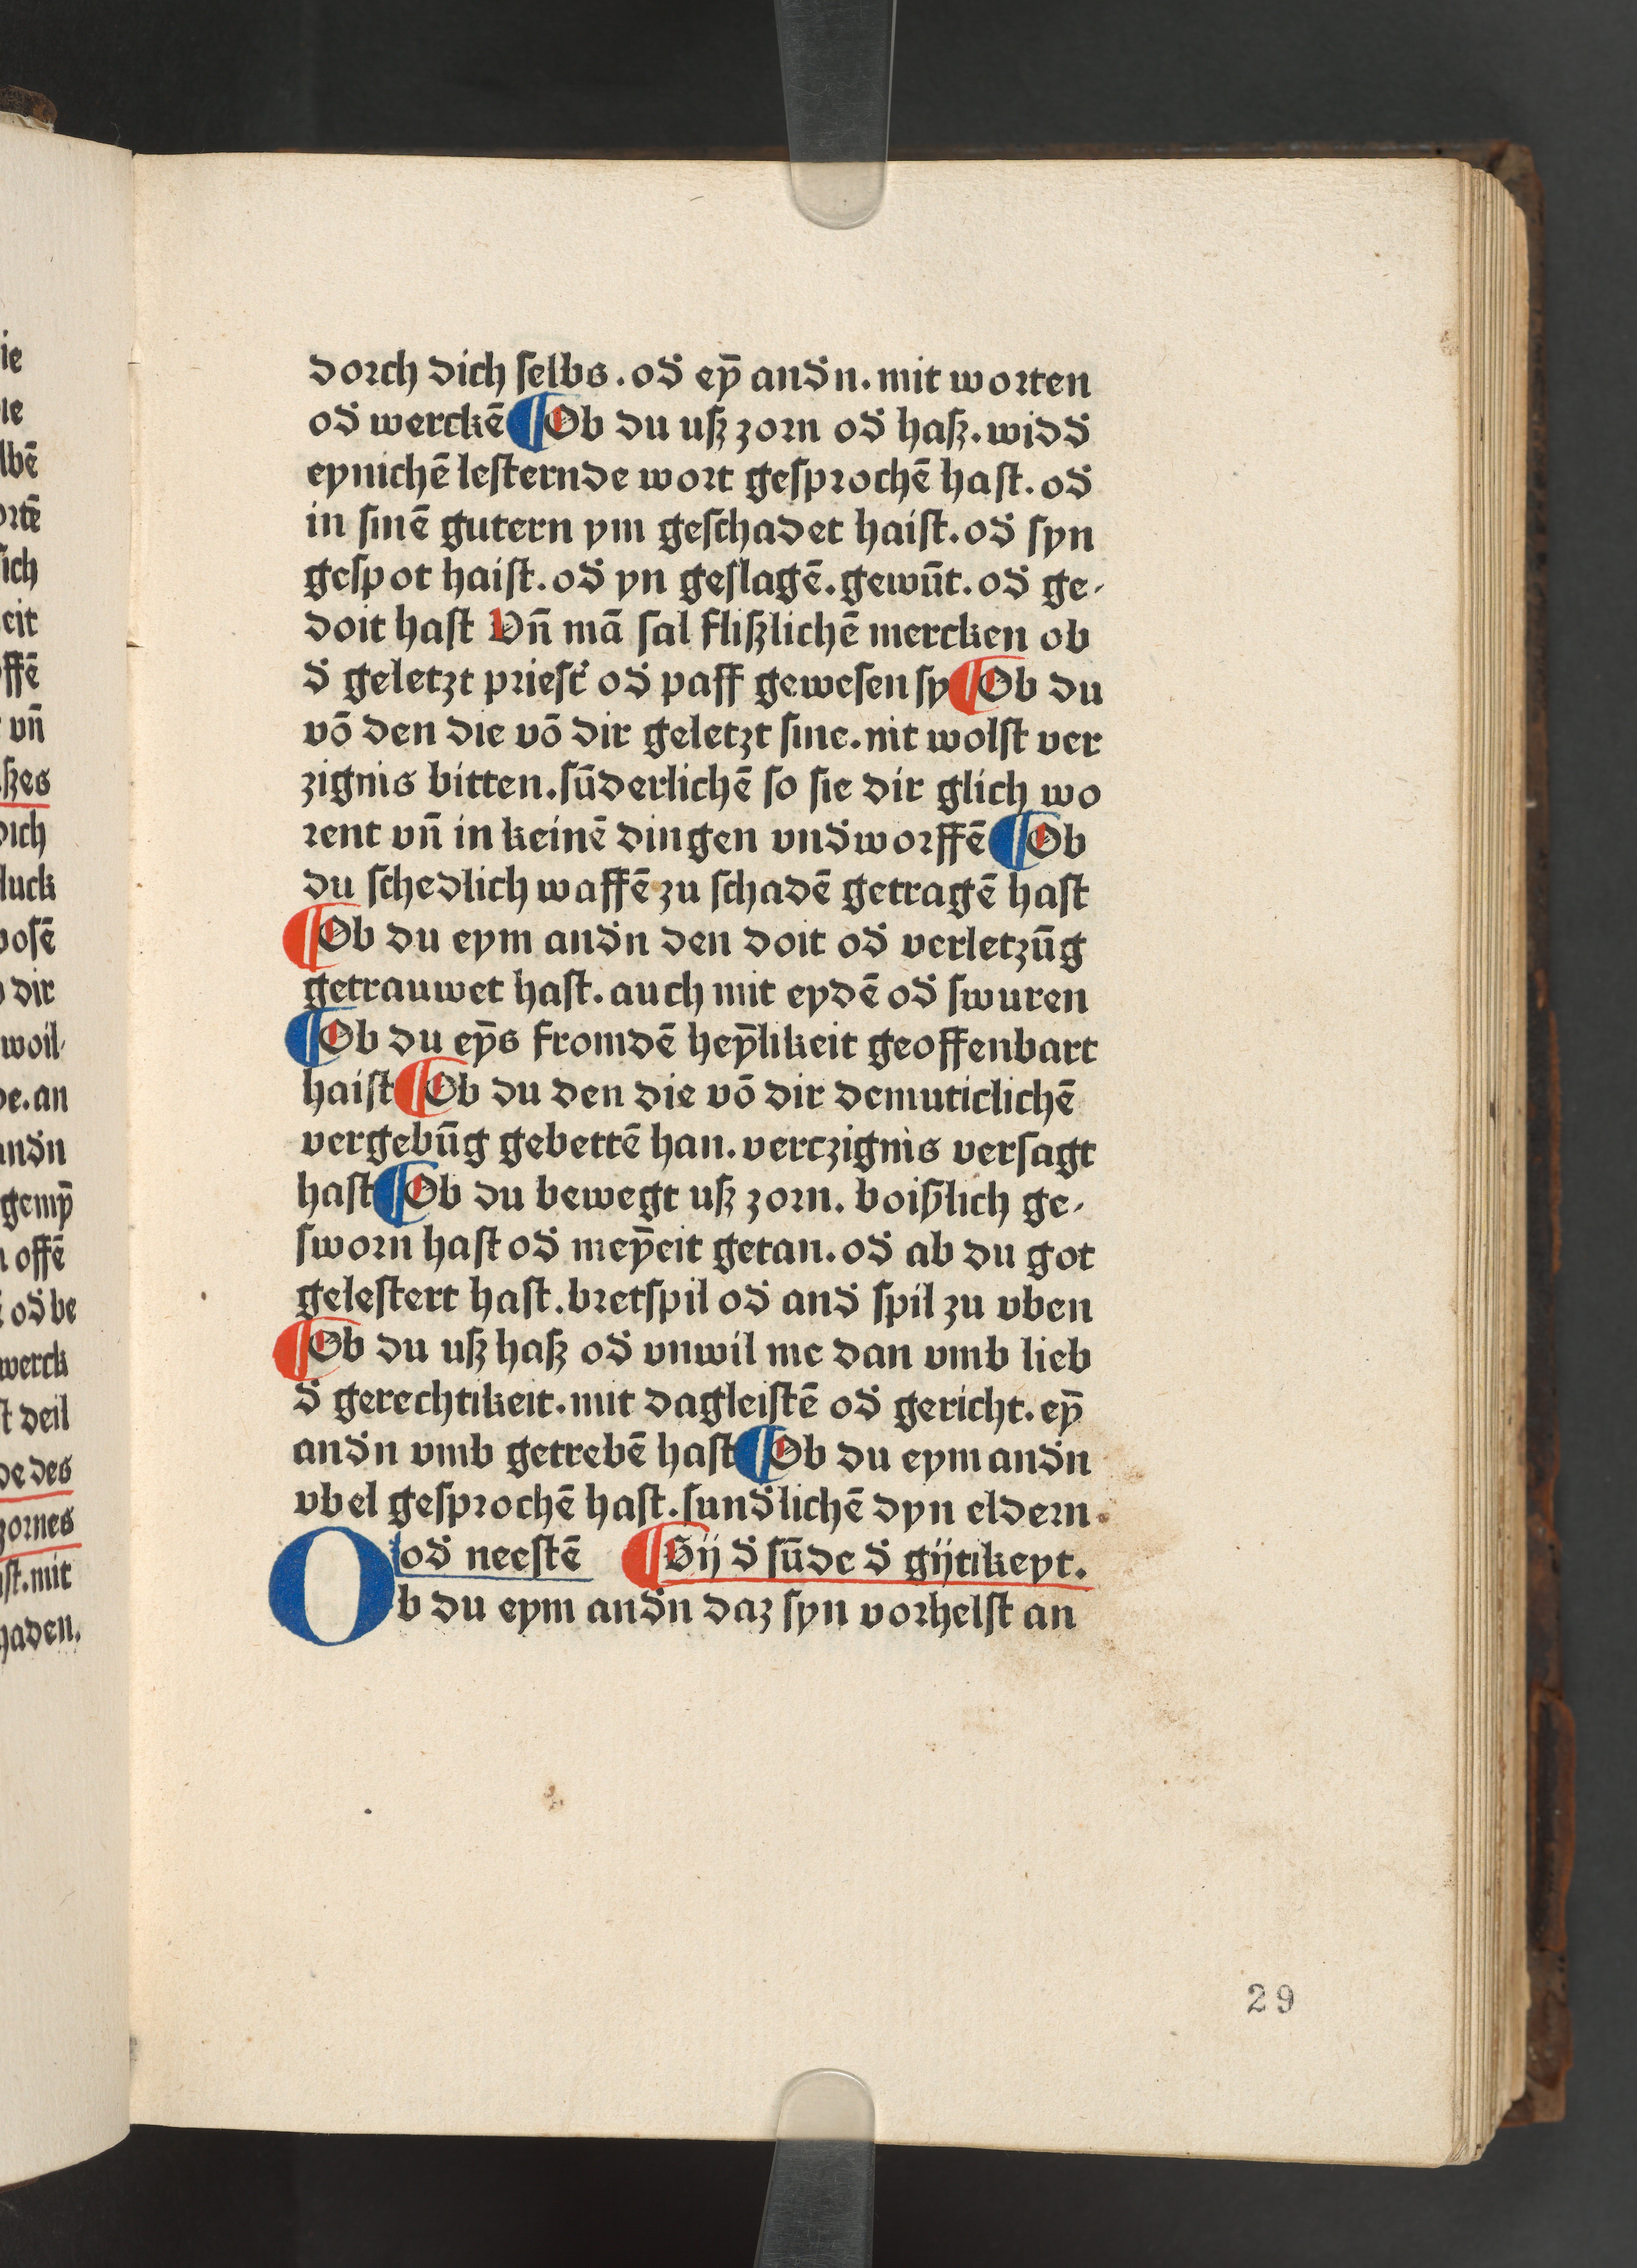 dorch dich ſelbs. od̕ ey̅ and̕n. mit worten
od̕ werckē ¶ Ob du uſz zorn od̕ haſz. widd̕
eynichē leſternde wort geſprochē haſt. od̕
in ſinē gutern ym geſchadet haiſt. od̕ ſyn
geſpot haiſt. od̕ yn geſlagē. gewūt. od̕ ge-
doit haſt Vn̄ mā ſal fliſzlichē mercken ob
d̕ geletzt prieſt̕ od̕ paff geweſen ſy ¶ Ob du
vō den die vō dir geletzt ſint. nit wolſt ver
zignis bitten. ſūderlichē ſo ſie dir glich wo
rent vn̄ in keinē dingen vnd̕worffē ¶ Ob
du ſchedlich waffē zu ſchadē getragē haſt
¶ Ob du eym and̕n den doit od̕ verletzūg
getrauwet haſt. auch mit eydē od̕ ſwuren
¶ Ob du ey̅s fromdē hey̅likeit geoffenbart
haiſt ¶ Ob du den die vō dir demuticlichē
vergebūg gebettē han. vertzignis verſagt
haſt ¶ Ob du bewegt uſz zorn. boiſzlich ge-
ſworn haſt od̕ mey̅eit getan. od̕ ab du got
geleſtert haſt. bretſpil od̕ and̕ ſpil zu vben
¶ Ob du uſz haſz od̕ vnwil me dan vmb lieb
d̕ gerechtikeit. mit dagleiſtē od̕ gericht. ey̅
and̕n vmb getrebē haſt ¶ Ob du eym and̕n
vbel geſprochē haſt. ſund̕lichē dyn eldern.
od̕ neeſtē ¶ Bij d̕ ſūde d̕ gijtikeyt.
Ob du eym and̕n daz ſyn vorhelſt an
29